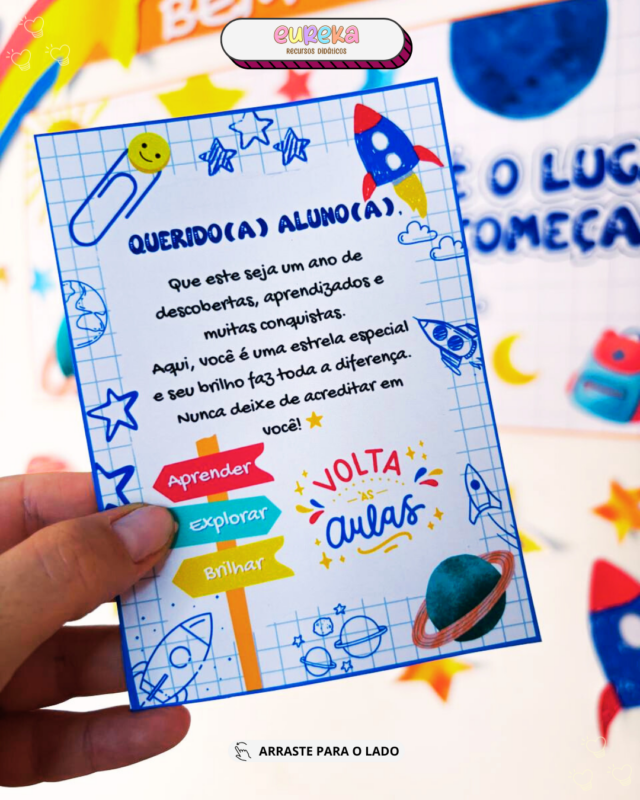 BEM
eureka
RECURSOS DIDÁTICOS
É O LUG
COMEÇA
QUERIDO(A) ALUNO(A),
Que este seja um ano de
descobertas, aprendizados e
muitas conquistas.
Aqui, você é uma estrela especial
e seu brilho faz toda a diferença.
Nunca deixe de acreditar em
você!
Aprender
Explorar
Brilhar
VOLTA
ÀS
aulas
ARRASTE PARA O LADO